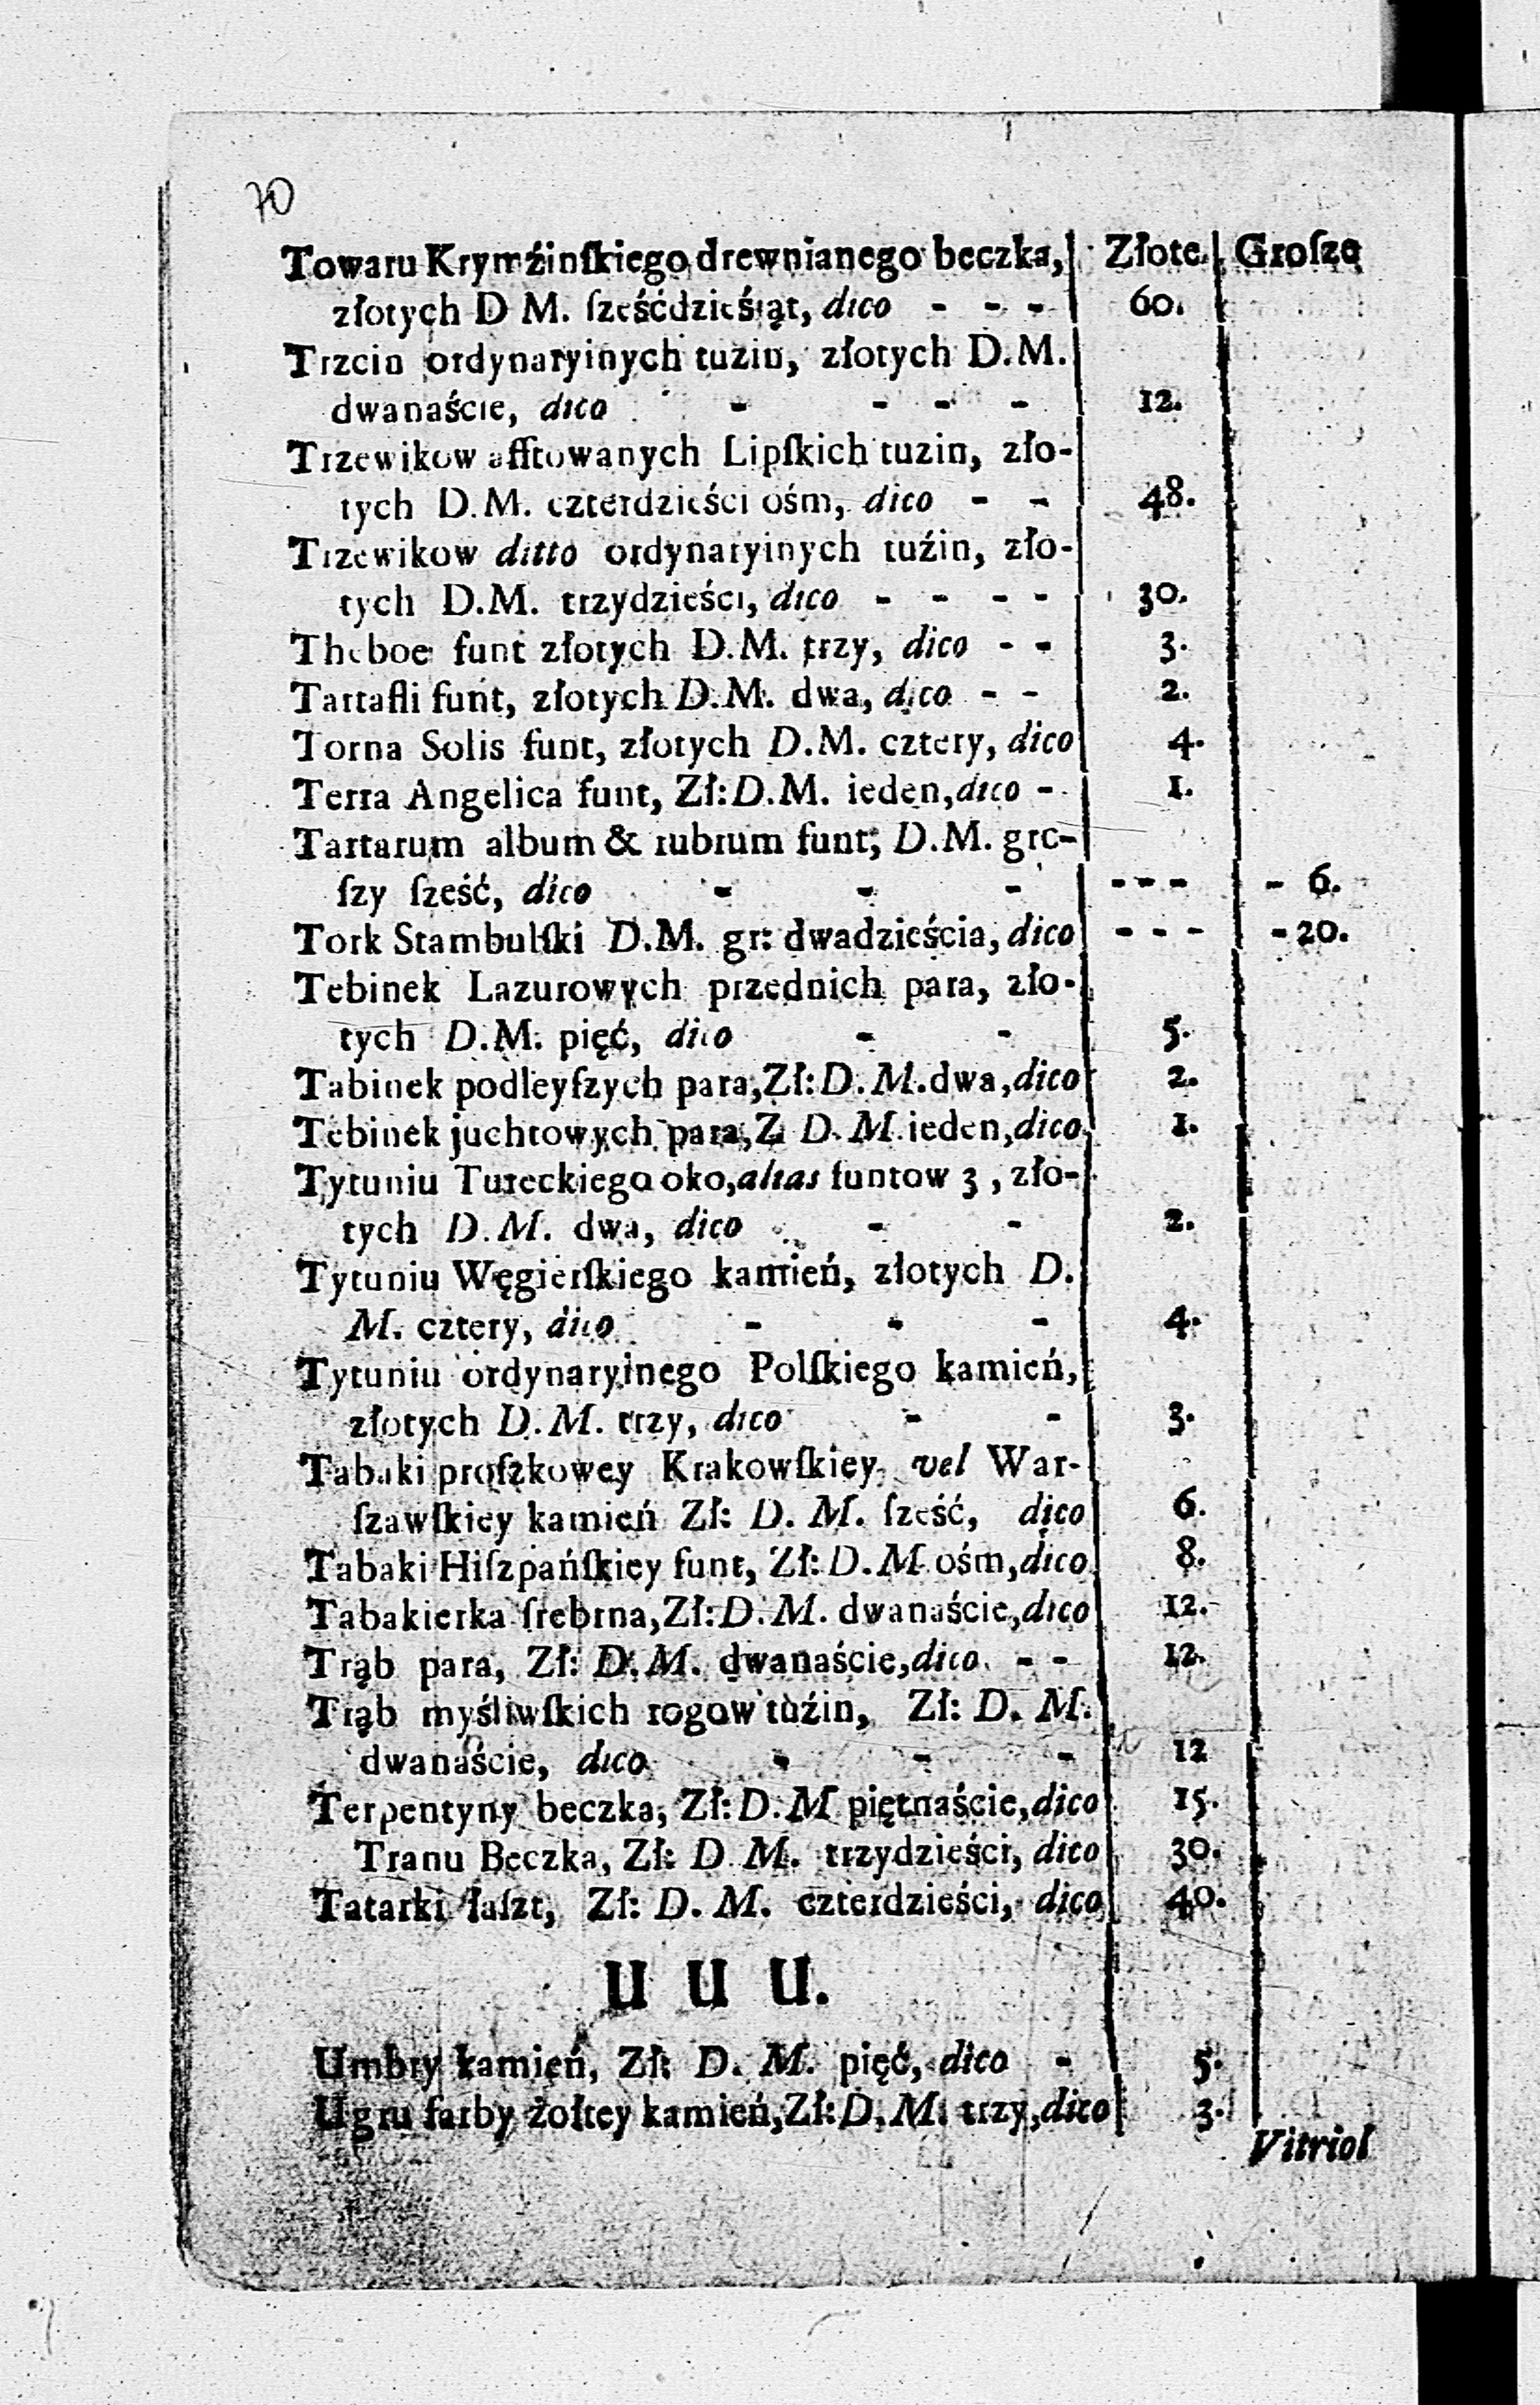 70
Towaru Krymźinſkiego drewnianego beczka, Złote. Groſze
złotych D M. ſześćdzieśiąt, dico - - - 60.
Trzcin ordynaryinych tuzin, złotych D.M.
dwanaście, dico - - - - 12.
Trzewikow afftowanych Lipſkich tuzin, zło-
tych D.M. czterdzieści ośm, dico - - 48.
Trzewikow ditto ordynaryinych tuźin, zło-
tych D.M. trzydzieści, dico - - - - 30.
Theboe funt złotych D.M. trzy, dico - - 3.
Tartafli funt, złotych D.M. dwa, dico - - 2.
Torna Solis funt, złotych D.M. cztery, dico 4.
Terra Angelica funt, Zł: D.M. ieden, dico - 1.
Tartarum album & rubrum funt; D.M. gro-
ſzy ſześć, dico - - - - - - - 6.
Tork Stambulſki D.M. gr: dwadzieścia, dico - - - - 20.
Tebinek Lazurowych przednich para, zło-
tych D.M. pięć, dico - - 5.
Tabinek podleyſzych para, Zł: D. M. dwa, dico 2.
Tebinek juchtowych para, Zł D. M. ieden, dico. 1.
Tytuniu Tureckiego oko, alias funtow 3, zło-
tych D.M. dwa, dico - - 2.
Tytuniu Węgierſkiego kamień, złotych D.
M. cztery, dico - - - 4.
Tytuniu ordynaryinego Polſkiego kamień,
złotych D.M. trzy, dico - - 3.
Tabaki proſzkowey Krakowſkiey vel War-
ſzawſkiey kamień Zł: D. M. ſześć, dico 6.
Tabaki Hiſzpańſkiey funt, Zł: D.M ośm, dico 8.
Tabakierka ſrebrna, Zł: D.M. dwanaście, dico 12.
Trąb para, Zł: D.M. dwanaście, dico. - - 12.
Trąb myśliwſkich rogow tuźin, Zł: D. M.
dwanaście, dico - - - 12
Terpentyny beczka, Zł: D.M piętnaście, dico 15.
Tranu Beczka, Zł: D M. trzydzieści, dico 30.
Tatarki łaſzt, Zł: D. M. czterdzieści, dico 40.
U U U.
Umbry kamień, Zł: D. M. pięć, dico - 5.
Ugru farby żołtey kamień, Zł: D.M. trzy, dico 3.
Vitriol